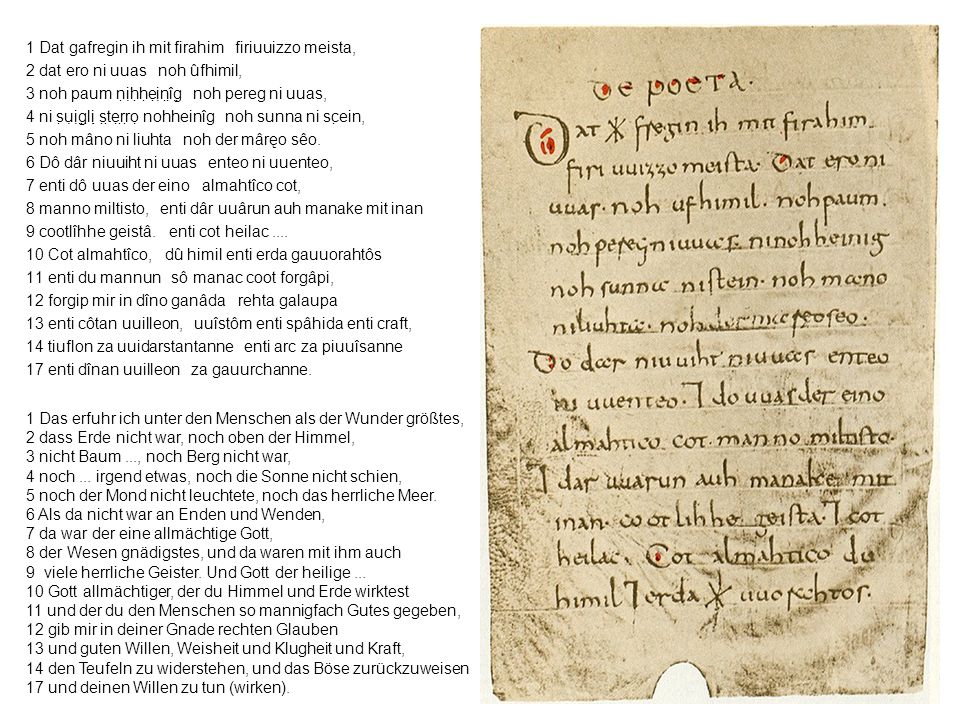 1 Dat gafregin ih mit firahim firiuuizzo meista,
2 dat ero ni uuas noh ûfhimil,
3 noh paum ṇịḥḥẹịṇîg̣ noh pereg ni uuas,
4 ni ṣụigḷị ṣṭẹṛṛọ nohheinîg noh sunna ni scein,
5 noh mâno ni liuhta noh der mâręo sêo.
6 Dô dâr niuuiht ni uuas enteo ni uuenteo,
7 enti dô uuas der eino almahtîco cot,
8 manno miltisto, enti dâr uuârun auh manake mit inan
9 cootlîhhe geistâ. enti cot heilac ....
10 Cot almahtîco, dû himil enti erda gauuorahtôs
11 enti du mannun sô manac coot forgâpi,
12 forgip mir in dîno ganâda rehta galaupa
13 enti côtan uuilleon, uuîstôm enti spâhida enti craft,
14 tiuflon za uuidarstantanne enti arc za piuuîsanne
17 enti dînan uuilleon za gauurchanne.
1 Das erfuhr ich unter den Menschen als der Wunder größtes,
2 dass Erde nicht war, noch oben der Himmel,
3 nicht Baum ..., noch Berg nicht war,
4 noch ... irgend etwas, noch die Sonne nicht schien,
5 noch der Mond nicht leuchtete, noch das herrliche Meer.
6 Als da nicht war an Enden und Wenden,
7 da war der eine allmächtige Gott,
8 der Wesen gnädigstes, und da waren mit ihm auch
9 viele herrliche Geister. Und Gott der heilige ...
10 Gott allmächtiger, der du Himmel und Erde wirktest
11 und der du den Menschen so mannigfach Gutes gegeben,
12 gib mir in deiner Gnade rechten Glauben
13 und guten Willen, Weisheit und Klugheit und Kraft,
14 den Teufeln zu widerstehen, und das Böse zurückzuweisen
17 und deinen Willen zu tun (wirken).
De poeta.
Dat ᚷ fregin ih mit firahim
firi uuizzo meista. Dat ero ni
uuas. noh ufhimil. noh paum
noh pereg niuuas. ninohheinig
noh sunna nistein. noh mano
niliuhta. noh der mareoseo.
Do dar niuuiht niuuas enteo
ni uuenteo. ⁊ do uuas der eino
almahtico cot. manno miltisto.
⁊ dar uuarun auh manake mit
inan. cootlihhe geista. ⁊ cot
heilac. Cot almahtico du
himil ⁊ erda ᚷ uuorahtos.